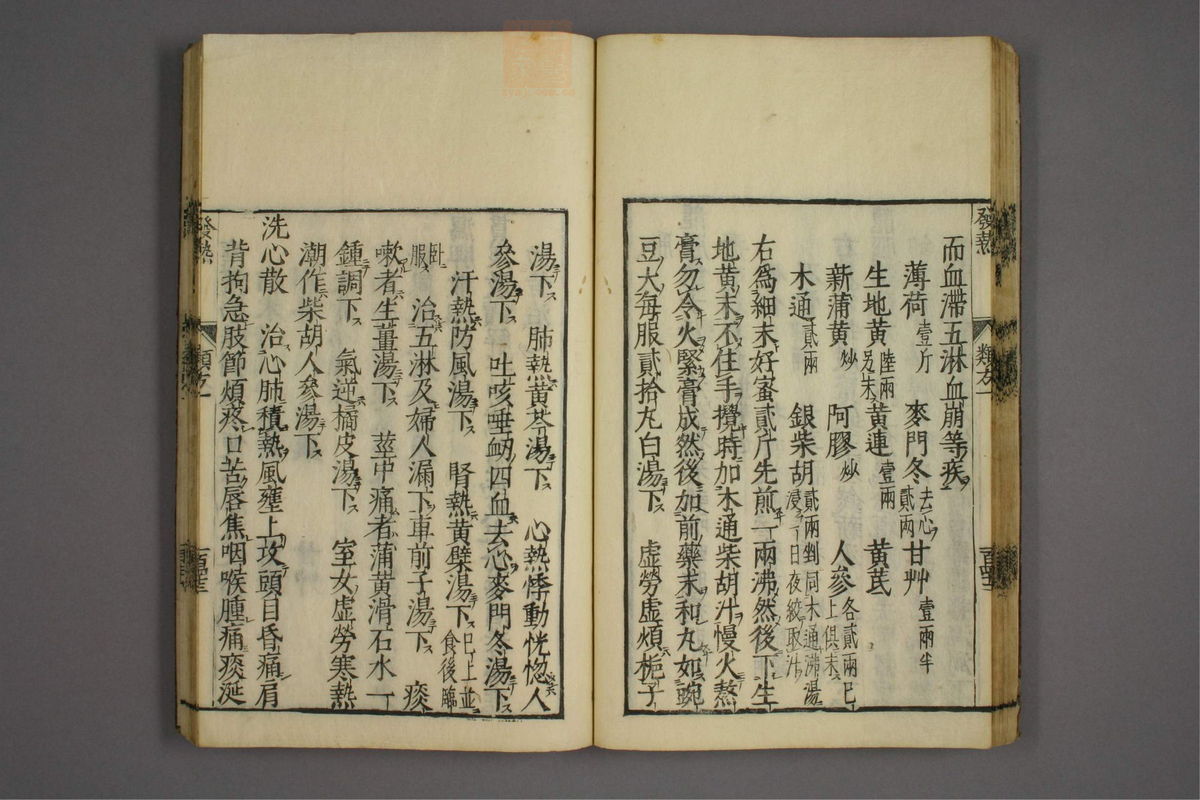 而血滯五淋血崩等疾
薄荷壹斤 麥門冬去心貳兩 甘艸壹兩半
生地黄陸兩另末 黄連壹兩 黄芪
新蒲黄炒 阿膠炒 人參各貳兩已上俱末
木通貳兩 銀柴胡貳兩剉同木通沸湯浸一日夜絞取汁
右爲細末好蜜貳斤先煎一兩沸然後下生
地黄末不住手攪時加木通柴胡汁慢火熬
膏勿令火緊膏成然後加前藥末和丸如豌
豆大每服貳拾丸白湯下 虛勞虛煩梔子
湯下 肺熱黄芩湯下 心熱悸動恍惚人
參湯下 吐咳唾衂四血去心麥門冬湯下
汗熱防風湯下 腎熱黄蘗湯下已上並食後臨
臥服 治五淋及婦人漏下車前子湯下 痰
嗽者生薑湯下 莖中痛者蒲黄滑石水一
鍾調下 氣逆橘皮湯下 室女虛勞寒熱
潮作柴胡人參湯下
洗心散 治心肺積熱風壅上攻頭目昏痛肩
背拘急肢節煩疼口苦唇焦咽喉腫痛痰涎
發熱 類方一
發熱 類方一